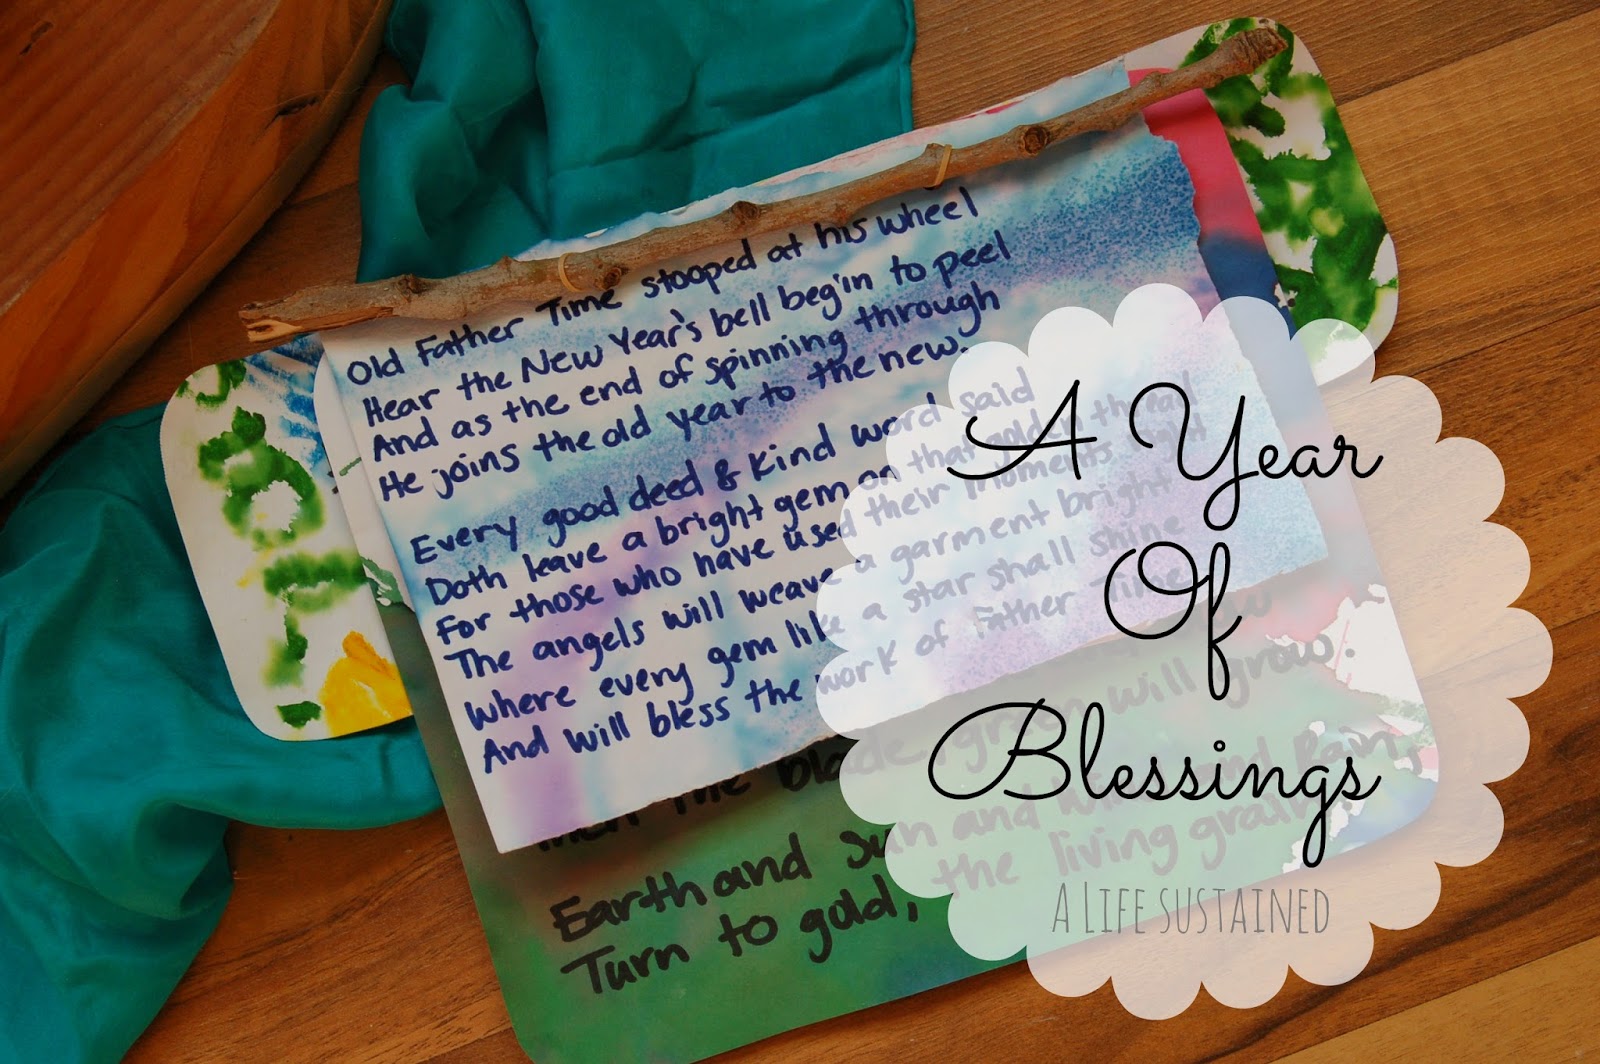 Old Father Time stooped at his wheel
Hear the New Year's bell begin to peel
And as the end of spinning through
He joins the old year to the new.
Every good deed & kind word said
Doth leave a bright gem on that golden thread
For those who have used their moments right
The angels will weave a garment bright
Where every gem like a star shall shine
And will bless the work of Father Time
Then the blade, green will grow.
Earth and Sun and Wind and Rain,
Turn to gold, the living grain.
A Year
Of
Blessings
A LIFE SUSTAINED